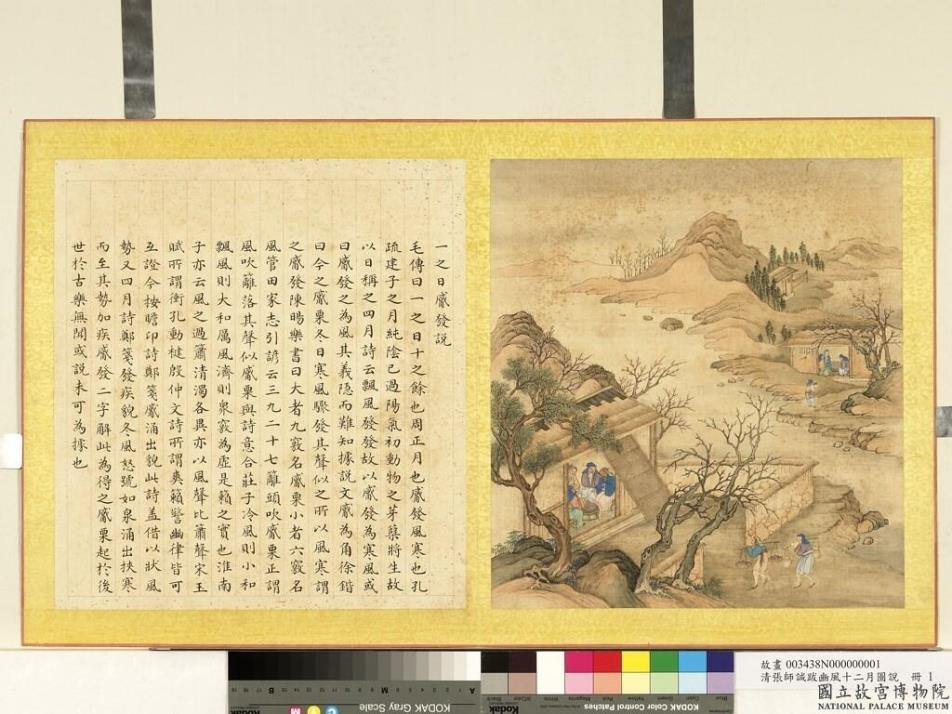 一之日觱發說
毛傳曰一之日十之餘也周正月也觱發風寒也孔
疏建子之月純陰已過陽氣初動物之芽蘖將生故
以日稱之四月詩云飄風發發故以觱發為寒風或
曰觱發之為風其義隱而難知據說文觱為角徐鍇
曰今之觱栗冬日寒風驟發其聲似之所以風寒謂
之觱發陳暘樂書曰大者九竅名觱栗小者六竅名
風管田家志引諺云三九二十七籬頭吹觱栗正謂
風吹籬落其聲似觱栗與詩意合莊子冷風則小和
飄風則大和厲風濟則衆竅為虛是籟之實也淮南
子亦云風之過簫清濁各異亦以風聲比簫聲宋玉
賦所謂衝孔動楗殷仲文詩所謂爽籟警幽律皆可
互證今按瞻卬詩鄭箋觱涌出貌此詩蓋借以狀風
勢又四月詩鄭箋發疾貌冬風怒號如泉涌出挾寒
而至其勢加疾觱發二字解此為得之觱栗起於後
世於古樂無聞或說未可為據也
KODAK Gray Scale
Kodak Color Control Patches
故畫 003438N000000001
清張師誠跋豳風十二月圖說 冊 1
國立故宮博物院
NATIONAL PALACE MUSEUM